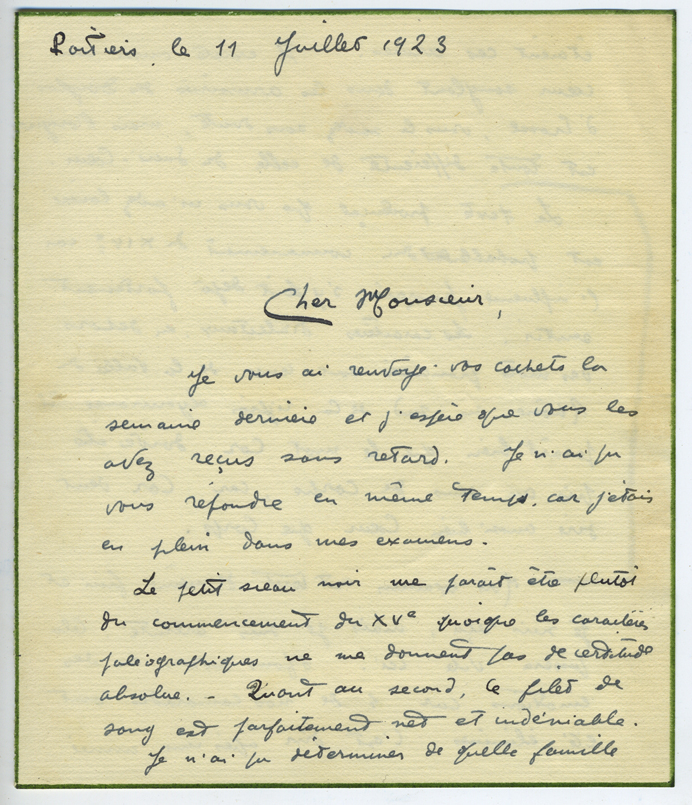 Poitiers, le 11 Juillet 1923
Cher Monsieur,
Je vous ai renvoyé vos cachets la
semaine dernière et j'espère que vous les
avez reçus sans retard. Je n'ai pu
vous répondre en même temps, car j'étais
en plein dans mes examens.
Le petit sceau noir me paraît être plutôt
du commencement du XVe quoique les caractères
paléographiques ne me donnent pas de certitude
absolue. - Quant au second, le filet de
sang est parfaitement net et indéniable.
Je n'ai pu déterminer de quelle famille